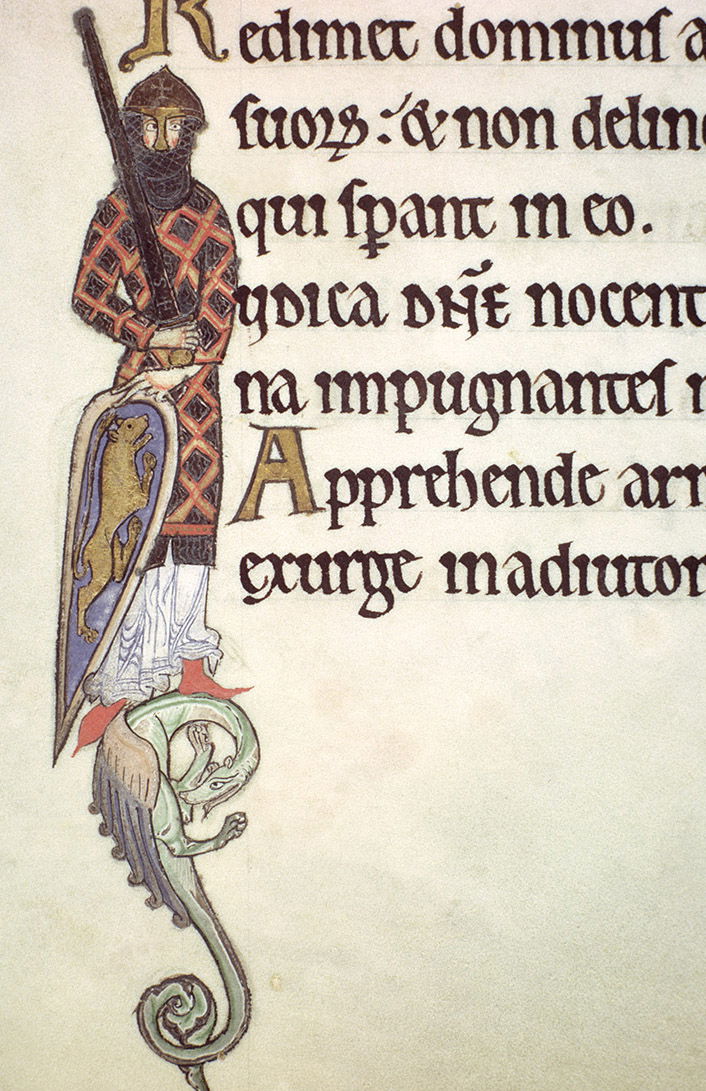 Redimet dominus a
suoꝝ: & non delin
qui sꝑant in eo.
Iudica dn̄e nocent
na impugnantes
Apprehende arr
exurge in adiutor